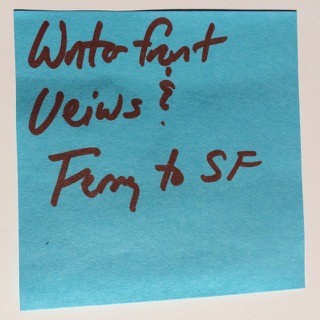 Waterfront
Veiws &
Ferry to SF